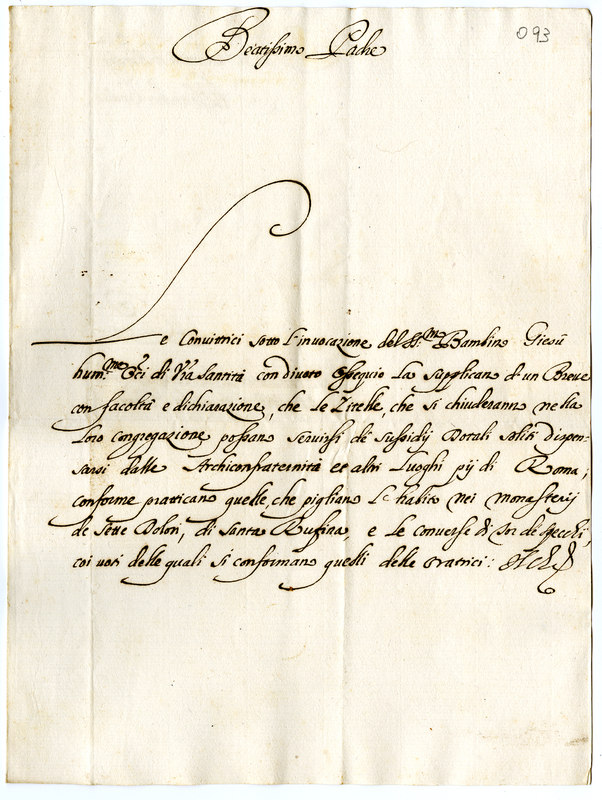 093
Beatissimo Padre
Le Convittrici sotto l'invocazione del SS.mo Bambino Giesù
hum.me Or.ci di V.ra Santità con divoto Ossequio La supplicano d'un Breve
con facoltà e dichiarazione, che le Zitelle, che si chiuderanno nella
loro congregazione possano servirsi de Sussidij Dotali soliti dispen-
sarsi dalle Archiconfraternità et altri Luoghi pij di Roma;
conforme praticano quelle, che pigliano l'habito nei monasterij
de Sette Dolori, di Santa Rufina, e le converse di Tor de Specchi,
coi voti delle quali si conformano quelli delle Oratrici: